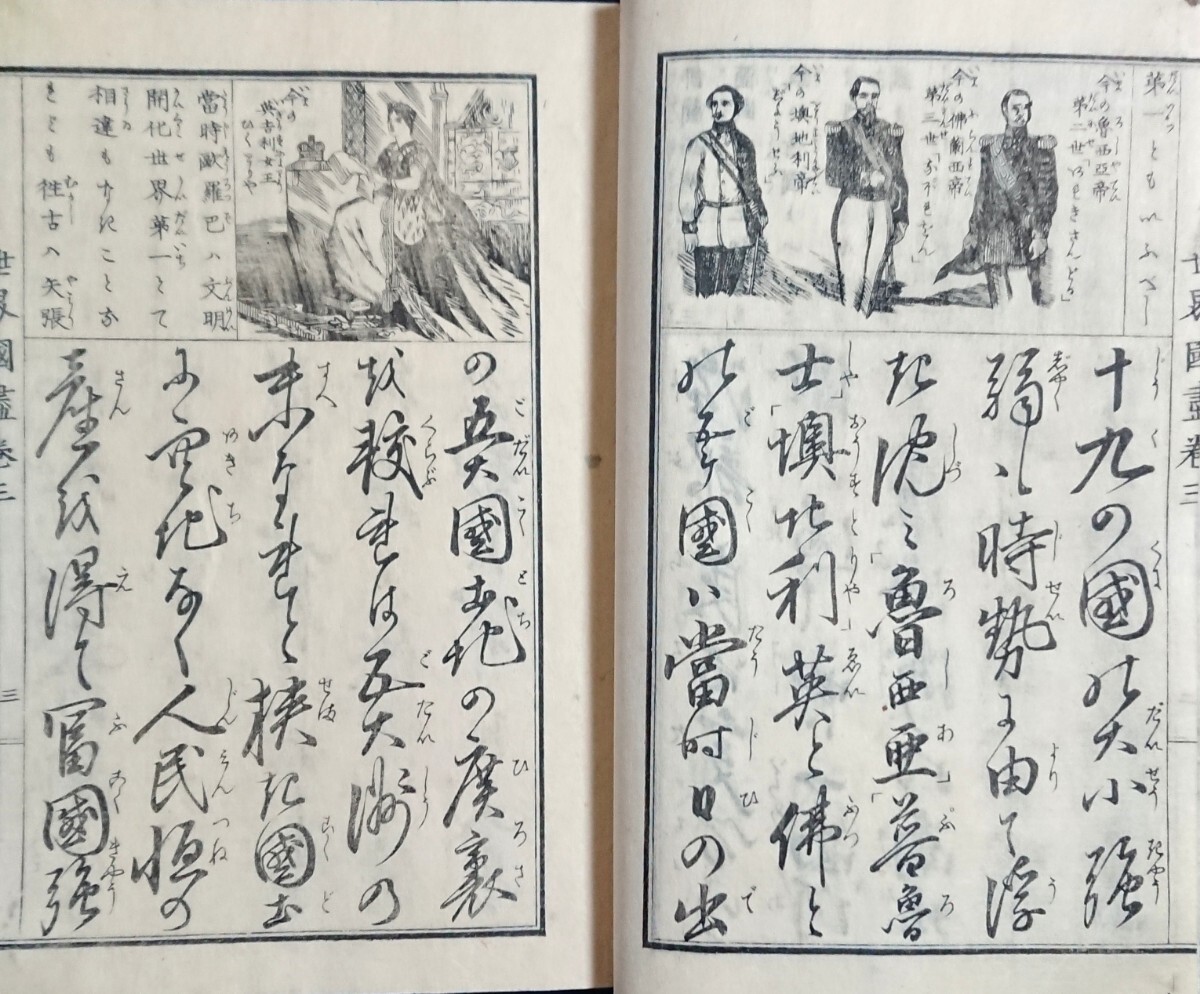 世界國盡 卷三
第一ともいふべし
今の魯西亞帝
第二世「あれきさんどる」
今の佛蘭西帝
第三世「なぽれおん」
今の澳地利帝
十九の國の大小強
弱も時勢に由て浮
き沈ミ「魯西亜」「普魯
士」「墺地利」英と佛と
の五ケ國ハ當時日の出
今の
英吉利女王
ひくとりや
當時歐羅巴ハ文明
開化世界第一とて
相違もなきことな
れども往古ハ矢張
の五大國土地の廣袤
を較れは五大洲の
末なれと狭き國土
に空地なく人民恒の
産を得て富國強
世界國盡 卷三
三